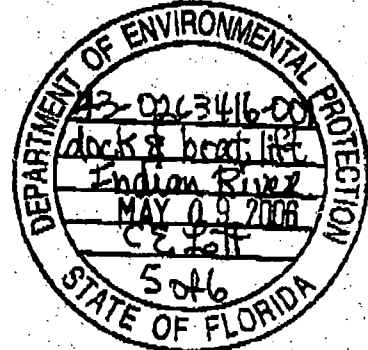 DEPARTMENT OF ENVIRONMENTAL PROTECTION
43-0263416-001
dock & boat lift
Indian River
MAY 09 2006
C E Lott
5 of 6
STATE OF FLORIDA